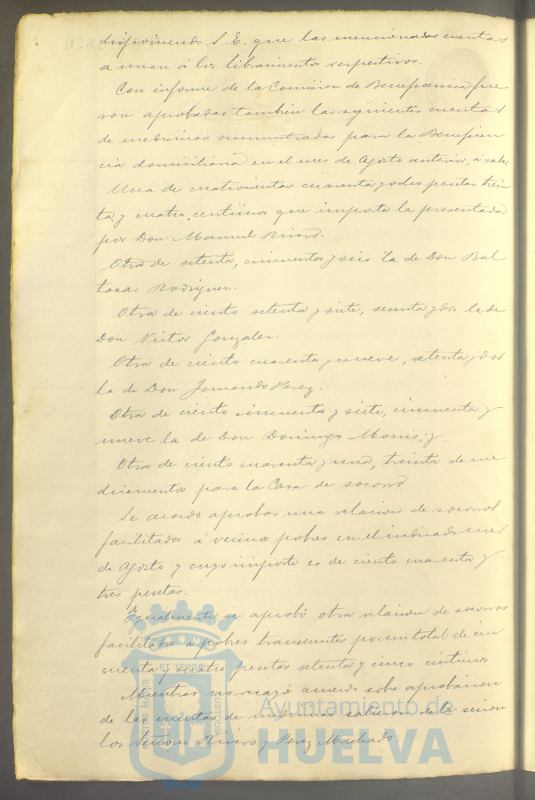 disponiendo S. E. que las mencionadas cuentas
se unan á los libramientos respectivos.
Con informe de la Comision de Beneficencia fue
ron aprobadas tambien las siguientes cuentas
de medicinas suministradas para la Beneficen
cia domiciliaria en el mes de Agosto anterior, a saber
Una de cuatrocientas cuarenta y ocho pesetas trein
ta y cuatro centimos que importa la presentada
por Don Manuel Rivero.
Otra de setenta, cincuenta y seis la de Don Bal
tasar Rodriguez.
Otra de ciento setenta y siete, sesenta y dos la de
Don Victor Gonzalez.
Otra de ciento cuarenta y nueve, setenta y dos
la de Don Fernando Perez.
Otra de ciento cincuenta y siete, cincuenta y
nueve la de Don Domingo y
Otra de ciento cuarenta y una, treinta de me
dicamentos para la Casa de socorro
Se acordó aprobar una relacion de socorros
facilitados á vecinos pobres en el indicado mes
de Agosto y cuyo importe es de ciento cuarenta y
tres pesetas.
Igualmente se aprobó otra relacion de socorros
facilitados á pobres transeuntes por un total de cin
cuenta y cuatro pesetas setenta y cinco centimos
Mientras recayó acuerdo sobre aprobacion
de las cuentas de medicinas salieron de la sesion
los Señores Rivero y Perez Machado.
Ayuntamiento de
HUELVA